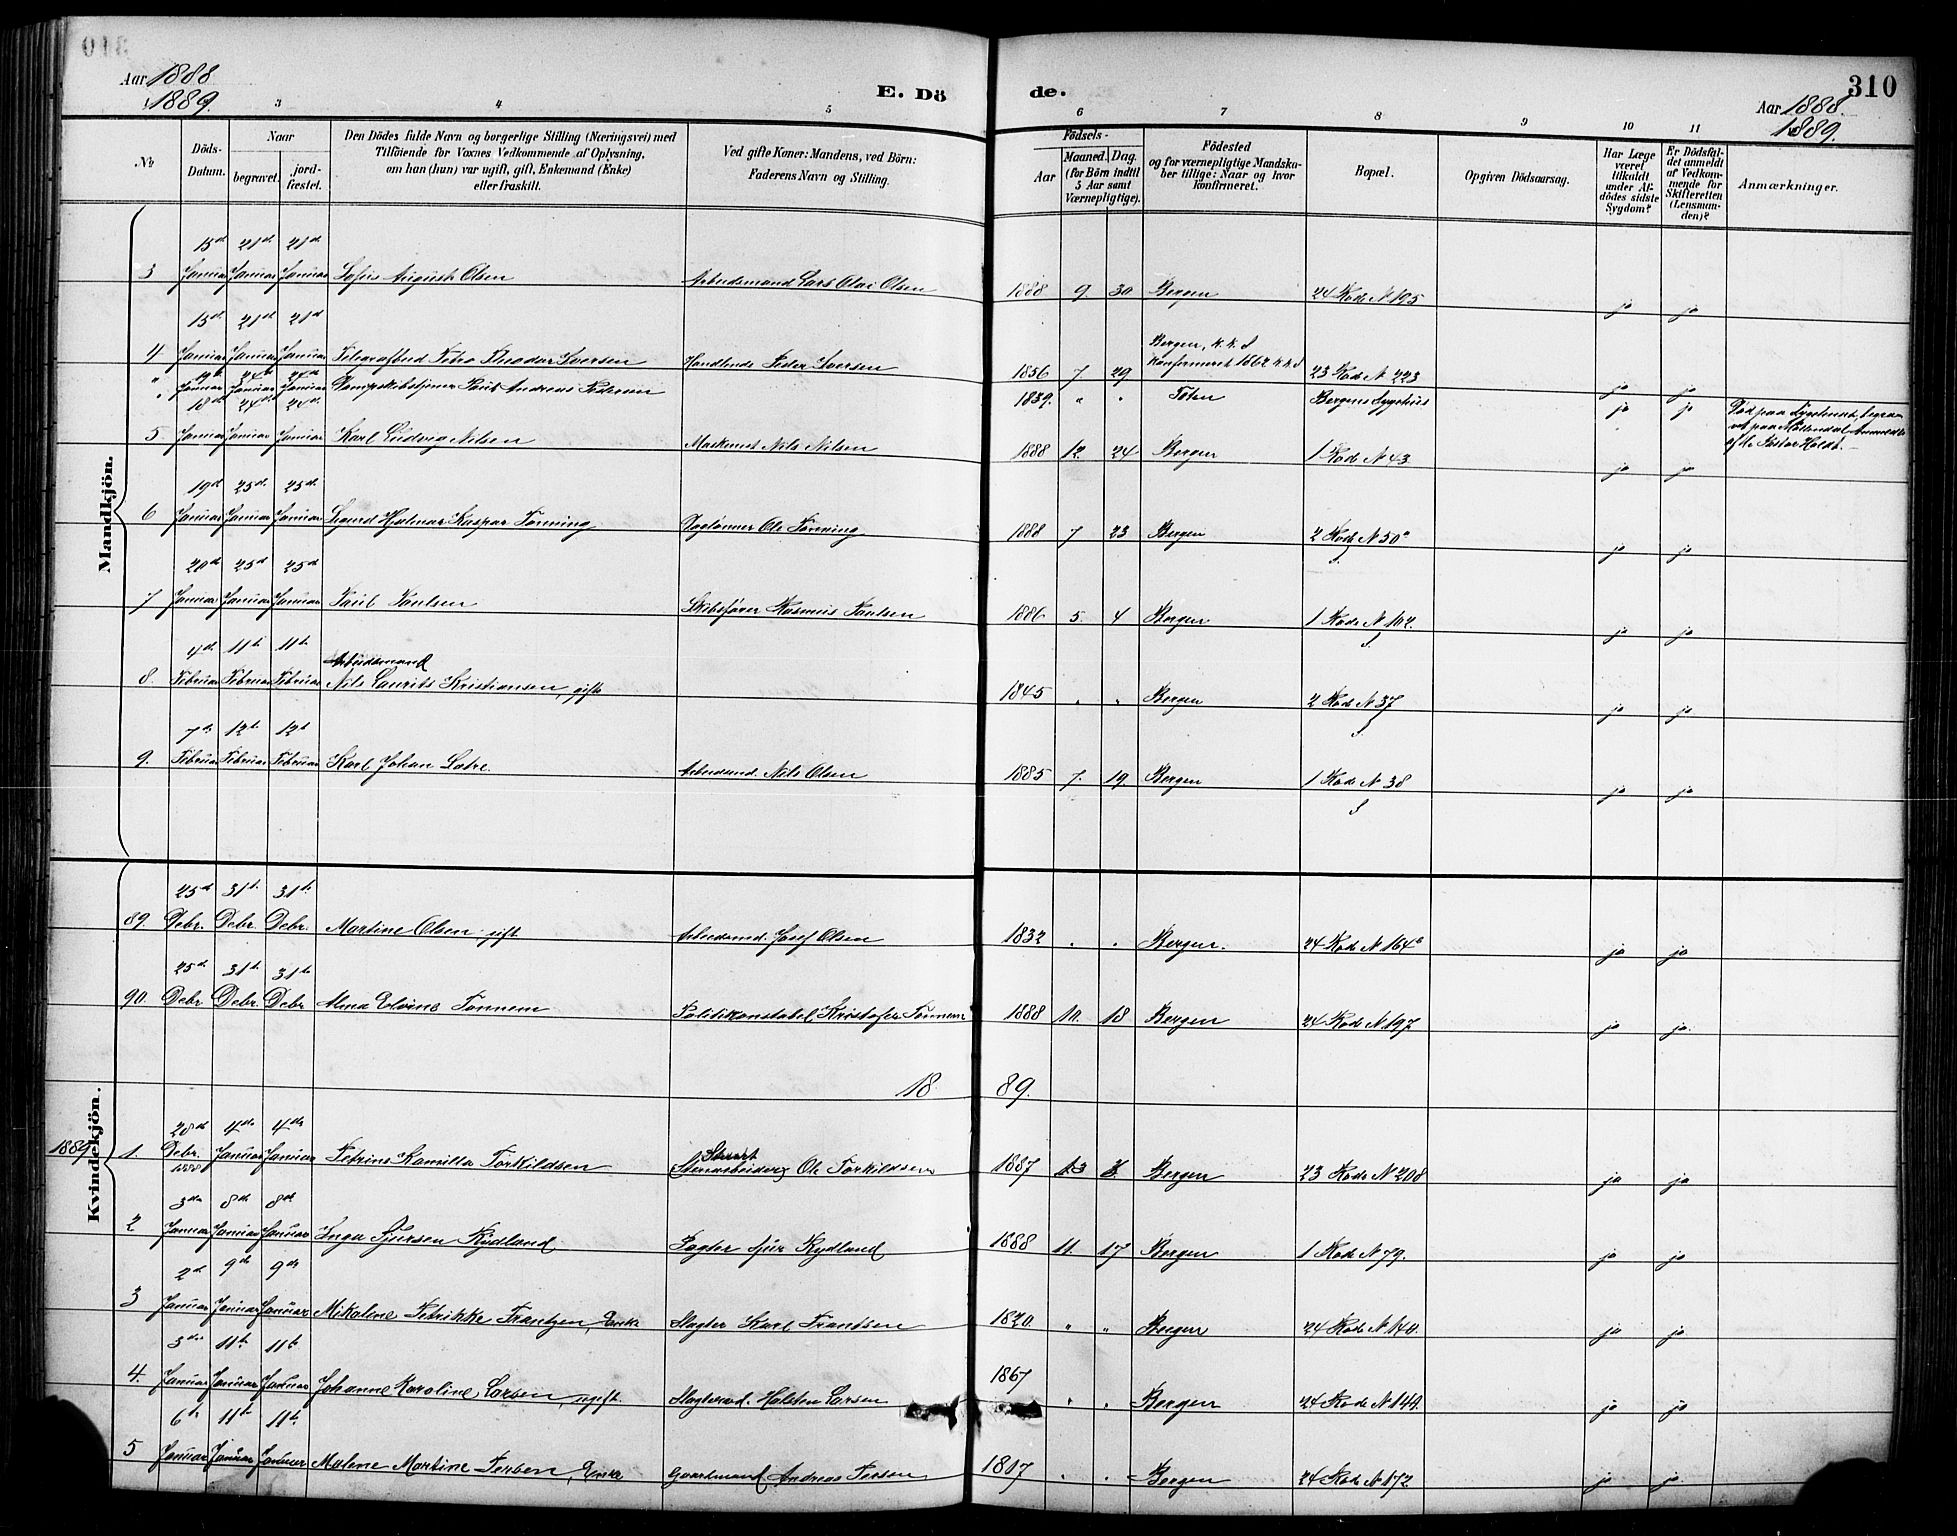 310
Aar 1888
1889.
E. Dö de.
Aar 1888.
1889.
3 4 5 6 7 8 9 10 11
No
Döds-Datum.
Naar
begravet. jord-fæstet.
Den Dödes fulde Navn og borgerlige Stilling (Næringsvei) med
Tilföiende for Voxnes Vedkommende af Oplysning,
om han (hun) var ugift, gift, Enkemand (Enke)
eller fraskilt.
Ved gifte Koner: Mandens, ved Börn:
Faderens Navn og Stilling.
Födsels-
Aar Maaned. Dag.
(for Börn indtil
5 Aar samt
Værnepligtige).
Födested
og for værnepligtige Mandska-
ber tillige: Naar og hvor
konfirmeret.
Bopæl.
Opgiven Dödsaarsag.
Har Læge
været
tilkaldt
under Af-
dödes sidste
Sygdom?
Er Dödsfal-
det anmeldt
af Vedkom-
mende for
Skifteretten
(Lensman-
den)?
Anmærkninger.
Mandkjön.
15de 21de 21de
3 Januar Januar Januar August Olsen Arbeidsmand Lars Olai Olsen 1888 9. 30 Bergen 24 Rode N 195 ja ja
15de 21de 21de
4 Januar Januar Januar Petro Theodor Iversen Handlende Peder Iversen 1856 7 29 Bergen, k.k. Konfirmeret 23 Rode N 223 ja ja
" Januar Januar Januar Andreas Pedersen 1839. " " Toten Bergens Sygehus ja ja Død paa Sygehuset, begra-
vet paa Møllendal. Anmeldt
af Pastor Holdt.
18de 24de 24de
5 Januar Januar Januar Karl Ludvig Nilsen Maskinist Nils Nilsen 1888 12. 24 Bergen 1 Rode N 43 ja ja
19de 25de 25de
6 Januar Januar Januar Hjalmar Kaspar Tønning Daglønner Ole Tønning 1888 7 23 Bergen 2 Rode N 50a ja ja
20de 25de 25de
7 Januar Januar Januar Paul Paulsen Skibsfører Rasmus Paulsen 1886 5. 4 Bergen 1 Rode N ja ja
4de 11te 11te
8. Februar Februar Februar Arbeidsmand
Nils Laurits Kristiansen, gift 1845 " " Bergen 2 Rode N 37 ja ja
7de 12te 12te
9. Februar Februar Februar Karl Johan Arbeidsmd. Nils Olsen 1885 7 19. Bergen 1 Rode N 38 ja ja
Kvindekjön.
25de 31te 31te
89. Debr. Debr. Debr. Martine Olsen gift Arbeidsmd. Josef Olsen 1832 " " Bergen. 24 Rode N 164a ja ja
25de 31te 31te
90. Debr. Debr. Debr. Alma Elvine Tønnem Politikonstabel Kristofer Tønnem 1888 10. 18 Bergen 24 Rode N 197 ja ja.
18 89.
28de 4de 4de
1889 1. Debr. 1888 Januar Januar Petrine Kamilla Torkildsen Stenarbeider Ole Torkildsen 1887 Bergen 23 Rode N 208 ja ja
3die 8de 8de
2 Januar Januar Januar Inga Sjursen Rydland Sjur Rydland 1888 11. 17 Bergen 1 Rode N 79. ja ja
2de 9de 9de
3 Januar Januar Januar Mikaline Petrikke Frantzen, Enke Slagter Karl Frantsen 1820. " " Bergen 24 Rode N 140. ja ja
3die 11te 11te
4. Januar Januar Januar Johanne Karoline Larsen, ugift. Holsten Larsen 1867 " " Bergen 24 Rode N 144. ja ja
6te 11te 11te
5 Januar Januar Januar Malene Martine Jersen, Enke Gaardmand Andreas Jersen 1807 " " Bergen 24 Rode N 172 ja ja.